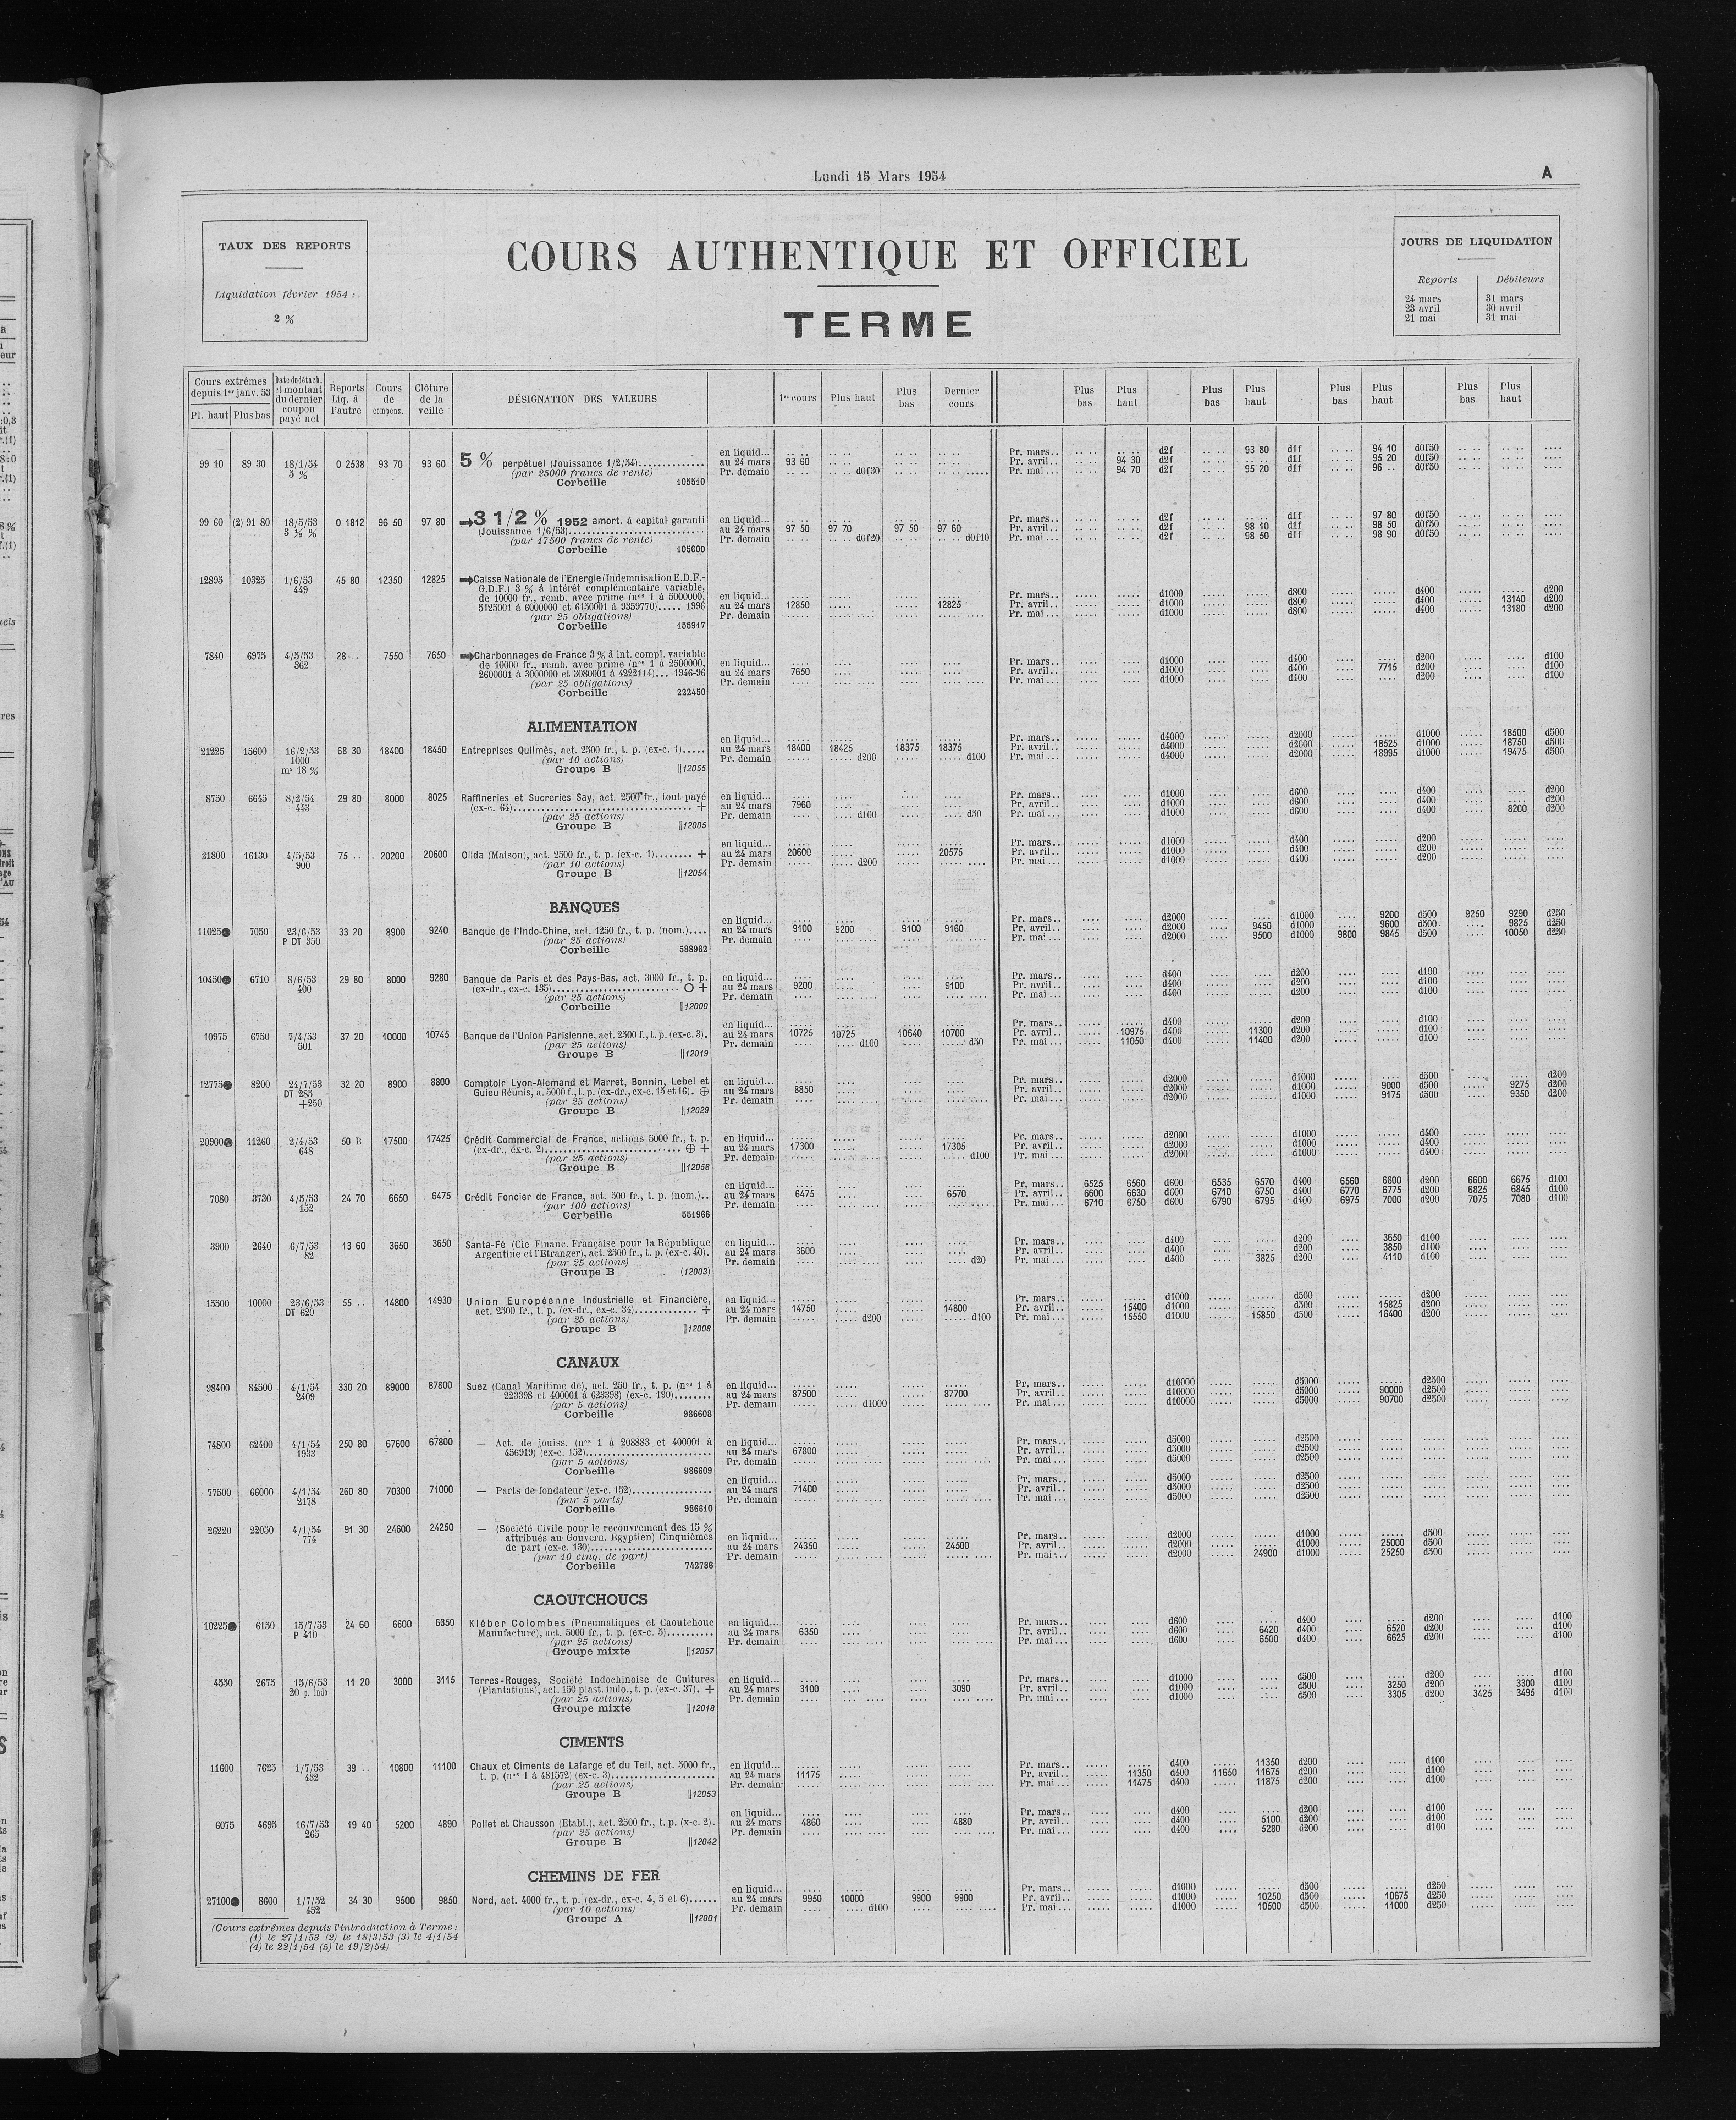 Lundi 15 Mars 1954
A
TAUX DES REPORTS
Liquidation février 1954 :
2 %
COURS AUTHENTIQUE ET OFFICIEL
TERME
JOURS DE LIQUIDATION
Reports Débiteurs
24 mars 31 mars
23 avril 30 avril
21 mai 31 mai
Cours extrêmes depuis 1er janv. 53 Pl. haut Plus bas
Date du détach. et montant du dernier coupon payé net
Reports Liq. à l'autre
Cours de compens.
Clôture de la veille
DÉSIGNATION DES VALEURS
1er cours Plus haut Plus bas Dernier cours
Plus bas Plus haut Plus bas Plus haut Plus bas Plus haut Plus bas Plus haut
99 10 89 30 18/1/54 0 2538 93 70 93 60 5 % perpétuel (Jouissance 1/2/54)
5 % (par 25000 francs de rente)
Corbeille 105510
en liquid...
au 24 mars 93 60
Pr. demain d0f30
Pr. mars.. d2f 93 80 d1f 94 10 d0f50
Pr. avril.. 94 30 d2f d1f 95 20 d0f50
Pr. mai... 94 70 d2f 95 20 d1f 96 .. d0f50
99 60 (2) 91 80 18/5/53 0 1812 96 50 97 80 3 1/2 % 1952 amort. à capital garanti
3 ½ % (Jouissance 1/6/53)
(par 17500 francs de rente)
Corbeille 105600
en liquid...
au 24 mars 97 50 97 70 97 50 97 60
Pr. demain d0f20 d0f10
Pr. mars.. d2f d1f 97 80 d0f50
Pr. avril.. d2f 98 10 d1f 98 50 d0f50
Pr. mai... d2f 98 50 d1f 98 90 d0f50
12895 10325 1/6/53 45 80 12350 12825 Caisse Nationale de l'Energie (Indemnisation E.D.F.-
449 G.D.F.) 3 % à intérêt complémentaire variable,
de 10000 fr., remb. avec prime (nos 1 à 5000000,
5125001 à 6000000 et 6150001 à 9359770)..... 1996
(par 25 obligations)
Corbeille 155917
en liquid...
au 24 mars 12850 12825
Pr. demain
Pr. mars.. d1000 d800 d400 d200
Pr. avril.. d1000 d800 d400 13140 d200
Pr. mai... d1000 d800 d400 13180 d200
7840 6975 4/5/53 28 .. 7550 7650 Charbonnages de France 3 % à int. compl. variable
362 de 10000 fr., remb. avec prime (nos 1 à 2500000,
2600001 à 3000000 et 3080001 à 4222114)... 1946-96
(par 25 obligations)
Corbeille 222450
en liquid...
au 24 mars 7650
Pr. demain
Pr. mars.. d1000 d400 d200 d100
Pr. avril.. d1000 d400 7715 d200 d100
Pr. mai... d1000 d400 d200 d100
ALIMENTATION
21225 15600 16/2/53 68 30 18400 18450 Entreprises Quilmès, act. 2500 fr., t. p. (ex-c. 1).....
1000 (par 10 actions)
m° 18 % Groupe B 12055
en liquid...
au 24 mars 18400 18425 18375 18375
Pr. demain d200 d100
Pr. mars.. d4000 d2000 d1000 18500 d500
Pr. avril.. d4000 d2000 18525 d1000 18750 d500
Pr. mai... d4000 d2000 18995 d1000 19475 d500
8750 6645 8/2/54 29 80 8000 8025 Raffineries et Sucreries Say, act. 2500 fr., tout payé
443 (ex-c. 64) +
(par 25 actions)
Groupe B 12005
en liquid...
au 24 mars 7960
Pr. demain d100 d50
Pr. mars.. d1000 d600 d400 d200
Pr. avril.. d1000 d600 d400 d200
Pr. mai... d1000 d600 d400 8200 d200
21800 16130 4/5/53 75 .. 20200 20600 Olida (Maison), act. 2500 fr., t. p. (ex-c. 1)........ +
900 (par 10 actions)
Groupe B 12054
en liquid...
au 24 mars 20600 20575
Pr. demain d200
Pr. mars.. d1000 d400 d200
Pr. avril.. d1000 d400 d200
Pr. mai... d1000 d400 d200
BANQUES
11025● 7050 23/6/53 33 20 8900 9240 Banque de l'Indo-Chine, act. 1250 fr., t. p. (nom.)....
P DT 350 (par 25 actions)
Corbeille 588962
en liquid...
au 24 mars 9100 9200 9100 9160
Pr. demain
Pr. mars.. d2000 d1000 9200 d500 9250 9290 d250
Pr. avril.. d2000 9450 d1000 9600 d500 9825 d250
Pr. mai... d2000 9500 d1000 9800 9845 d500 10050 d250
10450● 6710 8/6/53 29 80 8000 9280 Banque de Paris et des Pays-Bas, act. 3000 fr., t. p.
400 (ex-dr., ex-c. 135) O +
(par 25 actions)
Corbeille 12000
en liquid...
au 24 mars 9200 9100
Pr. demain
Pr. mars.. d400 d200 d100
Pr. avril.. d400 d200 d100
Pr. mai... d400 d200 d100
10975 6750 7/4/53 37 20 10000 10745 Banque de l'Union Parisienne, act. 2500 f., t. p. (ex-c. 3).
501 (par 25 actions)
Groupe B 12019
en liquid...
au 24 mars 10725 10725 10640 10700
Pr. demain d100 d50
Pr. mars.. d400 d200 d100
Pr. avril.. 10975 d400 11300 d200 d100
Pr. mai... 11050 d400 11400 d200 d100
12775● 8200 24/7/53 32 20 8900 8800 Comptoir Lyon-Alemand et Marret, Bonnin, Lebel et
DT 285 Guieu Réunis, a. 5000 f., t. p. (ex-dr., ex-c. 15 et 16). ⊕
+250 (par 25 actions)
Groupe B 12029
en liquid...
au 24 mars 8850
Pr. demain
Pr. mars.. d2000 d1000 d500 d200
Pr. avril.. d2000 d1000 9000 d500 9275 d200
Pr. mai... d2000 d1000 9175 d500 9350 d200
20900● 11260 2/4/53 50 B 17500 17425 Crédit Commercial de France, actions 5000 fr., t. p.
648 (ex-dr., ex-c. 2) ⊕ +
(par 25 actions)
Groupe B 12056
en liquid...
au 24 mars 17300 17305
Pr. demain d100
Pr. mars.. d2000 d1000 d400
Pr. avril.. d2000 d1000 d400
Pr. mai... d2000 d1000 d400
7080 3730 4/5/53 24 70 6650 6475 Crédit Foncier de France, act. 500 fr., t. p. (nom.)..
152 (par 100 actions)
Corbeille 551966
en liquid...
au 24 mars 6475 6570
Pr. demain
Pr. mars.. 6525 6560 d600 6535 6570 d400 6560 6600 d200 6600 6675 d100
Pr. avril.. 6600 6630 d600 6710 6750 d400 6770 6775 d200 6825 6845 d100
Pr. mai... 6710 6750 d600 6790 6795 d400 6975 7000 d200 7075 7080 d100
3900 2640 6/7/53 13 60 3650 3650 Santa-Fé (Cie Financ. Française pour la République
82 Argentine et l'Etranger), act. 2500 fr., t. p. (ex-c. 40).
(par 25 actions)
Groupe B (12003)
en liquid...
au 24 mars 3600
Pr. demain d20
Pr. mars.. d400 d200 3650 d100
Pr. avril.. d400 d200 3850 d100
Pr. mai... d400 3825 d200 4110 d100
15500 10000 23/6/53 55 .. 14800 14930 Union Européenne Industrielle et Financière,
DT 620 act. 2500 fr., t. p. (ex-dr., ex-c. 34)............. +
(par 25 actions)
Groupe B 12008
en liquid...
au 24 mars 14750 14800
Pr. demain d200 d100
Pr. mars.. d1000 d500 d200
Pr. avril.. 15400 d1000 d500 15825 d200
Pr. mai... 15550 d1000 15850 d500 16400 d200
CANAUX
98400 84500 4/1/54 330 20 89000 87800 Suez (Canal Maritime de), act. 250 fr., t. p. (nos 1 à
2409 223398 et 400001 à 623398) (ex-c. 190)........
(par 5 actions)
Corbeille 986608
en liquid...
au 24 mars 87500 87700
Pr. demain d1000
Pr. mars.. d10000 d5000 d2500
Pr. avril.. d10000 d5000 90000 d2500
Pr. mai... d10000 d5000 90700 d2500
74800 62400 4/1/54 250 80 67600 67800 — Act. de jouiss. (nos 1 à 208883 et 400001 à
1933 456919) (ex-c. 152)
(par 5 actions)
Corbeille 986609
en liquid...
au 24 mars 67800
Pr. demain
Pr. mars.. d5000 d2500
Pr. avril.. d5000 d2500
Pr. mai d5000 d2500
77500 66000 4/1/54 260 80 70300 71000 — Parts de fondateur (ex-c. 152)
2178 (par 5 parts)
Corbeille 986610
en liquid...
au 24 mars 71400
Pr. demain
Pr. mars.. d5000 d2500
Pr. avril.. d5000 d2500
Pr. mai... d5000 d2500
26220 22050 4/1/54 91 30 24600 24250 — (Société Civile pour le recouvrement des 15 %
774 attribués au Gouvern. Egyptien) Cinquièmes
de part (ex-c. 130)
(par 10 cinq. de part)
Corbeille 742736
en liquid...
au 24 mars 24350 24500
Pr. demain
Pr. mars.. d2000 d1000 d500
Pr. avril.. d2000 d1000 25000 d500
Pr. mai... d2000 24900 d1000 25250 d500
CAOUTCHOUCS
10225● 6150 15/7/53 24 60 6600 6350 Kléber Colombes (Pneumatiques et Caoutchouc
P 410 Manufacturé), act. 5000 fr., t. p. (ex-c. 5)
(par 25 actions)
Groupe mixte 12057
en liquid...
au 24 mars 6350
Pr. demain
Pr. mars.. d600 d400 d200 d100
Pr. avril.. d600 6420 d400 6520 d200 d100
Pr. mai... d600 6500 d400 6625 d200 d100
4550 2675 15/6/53 11 20 3000 3115 Terres-Rouges, Société Indochinoise de Cultures
20 p. indo (Plantations), act. 150 piast. indo., t. p. (ex-c. 37). +
(par 25 actions)
Groupe mixte 12018
en liquid...
au 24 mars 3100 3090
Pr. demain
Pr. mars.. d1000 d500 d200 d100
Pr. avril.. d1000 d500 3250 d200 3300 d100
Pr. mai... d1000 d500 3305 d200 3425 3495 d100
CIMENTS
11600 7625 1/7/53 39 .. 10800 11100 Chaux et Ciments de Lafarge et du Teil, act. 5000 fr.,
432 t. p. (nos 1 à 481572) (ex-c. 3)
(par 25 actions)
Groupe B 12053
en liquid...
au 24 mars 11175
Pr. demain
Pr. mars.. d400 11350 d200 d100
Pr. avril.. 11350 d400 11650 11675 d200 d100
Pr. mai... 11475 d400 11875 d200 d100
6075 4695 16/7/53 19 40 5200 4890 Poliet et Chausson (Etabl.), act. 2500 fr., t. p. (x-c. 2).
265 (par 25 actions)
Groupe B 12042
en liquid...
au 24 mars 4860 4880
Pr. demain
Pr. mars.. d400 d200 d100
Pr. avril.. d400 5100 d200 d100
Pr. mai... d400 5280 d200 d100
CHEMINS DE FER
27100● 8600 1/7/52 34 30 9500 9850 Nord, act. 4000 fr., t. p. (ex-dr., ex-c. 4, 5 et 6)......
452 (par 10 actions)
Groupe A 12001
en liquid...
au 24 mars 9950 10000 9900 9900
Pr. demain d100
Pr. mars.. d1000 d500 d250
Pr. avril.. d1000 10250 d500 10675 d250
Pr. mai... d1000 10500 d500 11000 d250
(Cours extrêmes depuis l'introduction à Terme :
(1) le 27/1/53 (2) le 18/3/53 (3) le 4/1/54
(4) le 22/1/54 (5) le 19/2/54)